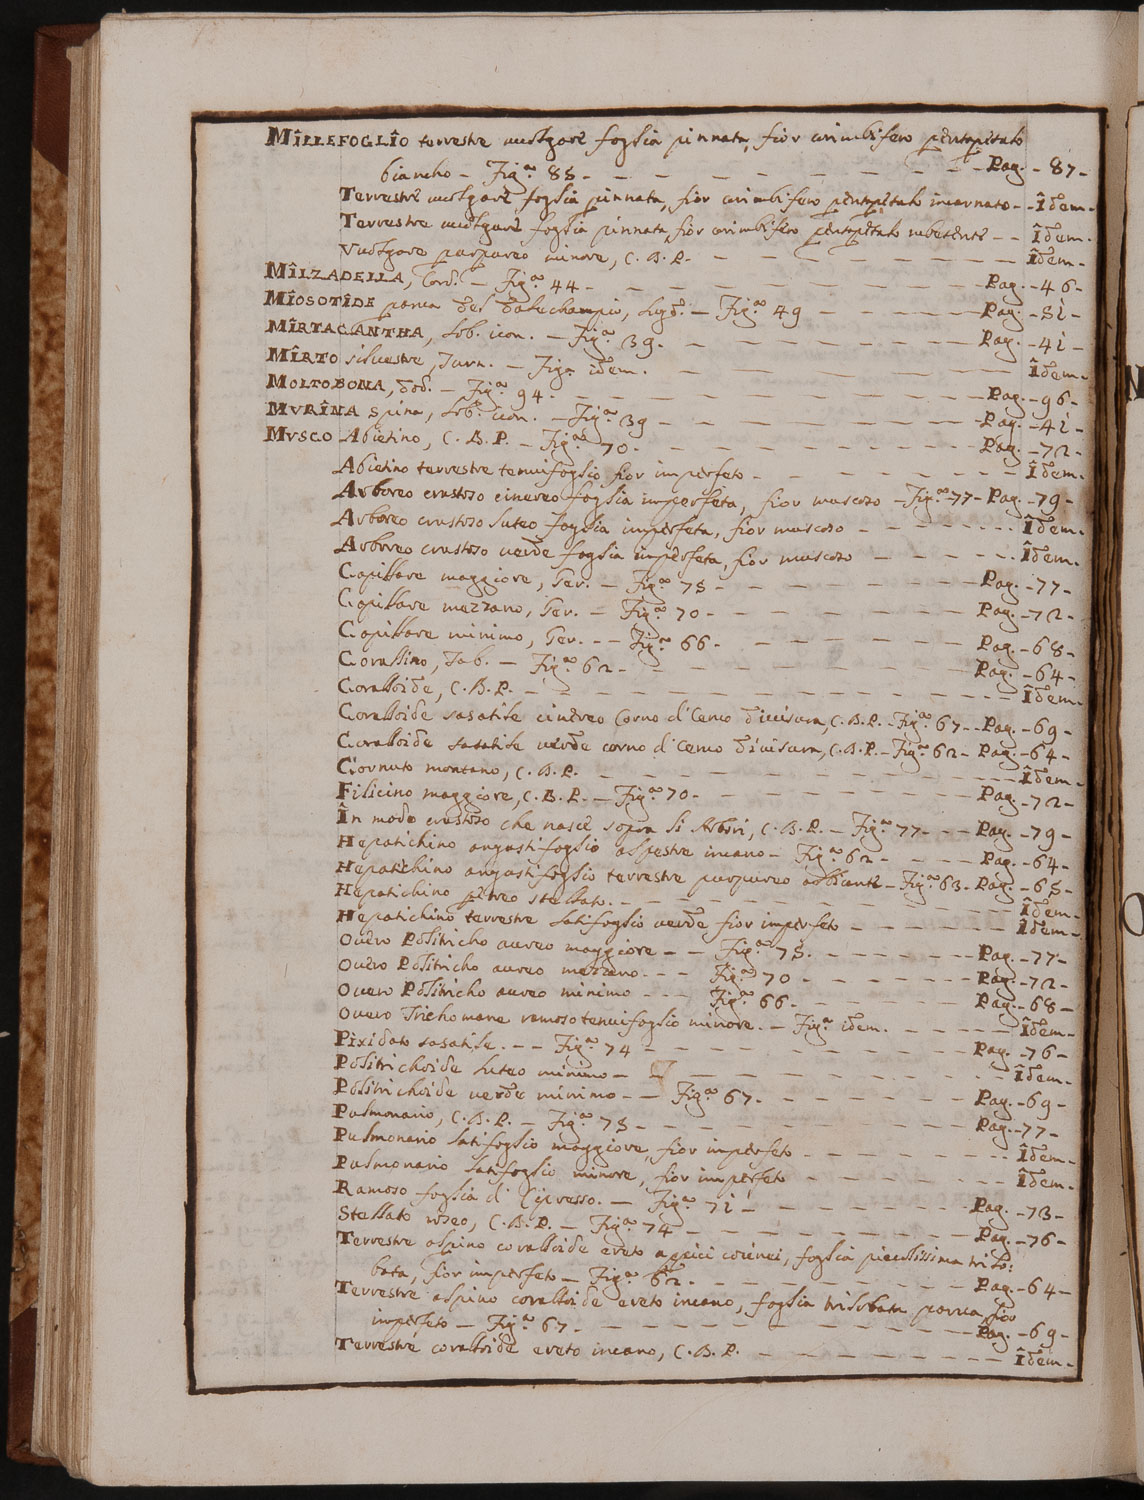 MÎLLEFOGLÎO terrestre uulgare foglia pinnata, fior corimbifero pentapetalo
biancho - Fig.ª 85 - Pag. - 87 -
Terrestre uulgare foglia pinnata, fior corimbifero pentapetalo incarnato - - Îdem -
Terrestre uulgare foglia pinnata, fior corimbifero pentapetalo rubescente - - Îdem -
Vuolgare purpureo minore, C. B. P. - Îdem -
MÎLZADELLA, Cord. - Fig.ª 44 - Pag. - 46 -
MÎOSOTÎDE parua del Dalechampio, Lugd. - Fig.ª 49 - Pag. - 51 -
MÎRTACANTHA, Lob. icon. - Fig.ª 39 - Pag. - 41 -
MÎRTO siluestre, Turn. - Fig.ª idem. Îdem -
MOLTOBONA, Dod. - Fig.ª 94 - Pag. - 96 -
MVRÎNA spina, Lob. icon. - Fig.ª 39 - Pag. - 41 -
MVSCO Abietino, C. B. P. - Fig.ª 70 - Pag. - 72 -
Abietino terrestre tenuifoglio fior imperfeto - Îdem -
Arboreo crustoso cinereo foglia imperfeta, fior muscoso - Fig.ª 77 - Pag. - 79 -
Arboreo crustoso luteo foglia imperfeta, fior muscoso - Îdem -
Arboreo crustoso uerde foglia imperfeta, fior muscoso - Îdem -
Capillare maggiore, Ger. - Fig.ª 75 - Pag. - 77 -
Capillare mezzano, Ger. - Fig.ª 70 - Pag. - 72 -
Capillare minimo, Ger. - - Fig.ª 66 - Pag. - 68 -
Corallino, Tab. - Fig.ª 62 - Pag. - 64 -
Coralloide, C. B. P. - Îdem -
Coralloide sasatile cinereo Corno di Ceruo diuisura, C. B. P. - Fig.ª 67 - - Pag. - 69 -
Coralloide sasatile uerde corno di Ceruo diuisura, C. B. P. - Fig.ª 62 - Pag. - 64 -
Ciornuto montano, C. B. P. - Îdem -
Filicino maggiore, C. B. P. - Fig.ª 70 - Pag. - 72 -
În modo crustoso che nasce sopra li Arbori, C. B. P. - Fig.ª 77 - Pag. - 79 -
Hepatichino angustifoglio alpestre incano - Fig.ª 62 - Pag. - 64 -
Hepatichino angustifoglio terrestre purpureo albicante - Fig.ª 63 - Pag. - 65 -
Hepatichino petreo stellato. - Îdem -
Hepatichino terrestre latifoglio uerde, fior imperfeto - Îdem -
Ouero Politricho aureo maggiore - - Fig.ª 75. - Pag. - 77 -
Ouero Politricho aureo mezzano - - - Fig.ª 70 - Pag. - 72 -
Ouero Politricho aureo minimo - - - Fig.ª 66 - Pag. - 68 -
Ouero Trichomane ramoso tenuifoglio minore. - Fig.ª idem. - Îdem -
Pixidato sasatile. - - Fig.ª 74 - Pag. - 76 -
Politrichoide luteo minimo - Îdem -
Politrichoide uerde minimo - - Fig.ª 67 - Pag. - 69 -
Pulmonario, C. B. P. - Fig.ª 75 - Pag. - 77 -
Pulmonario latifoglio maggiore, fior imperfeto - Îdem -
Pulmonario latifoglio minore, fior imperfeto - Îdem -
Ramoso foglia di Cipresso. - Fig.ª 71 - Pag. - 73 -
Stellato roseo, C. B. P. - Fig.ª 74 - Pag. - 76 -
Terrestre alpino coralloide ereto apici coccinei, foglia picollissima trilo:
bata, fior imperfeto - Fig.ª 62 - Pag. - 64 -
Terrestre alpino coralloide ereto incano, foglia trilobata parua, fior
imperfeto - Fig.ª 67 - Pag. - 69 -
Terrestre coralloide ereto incano, C. B. P. - Îdem -